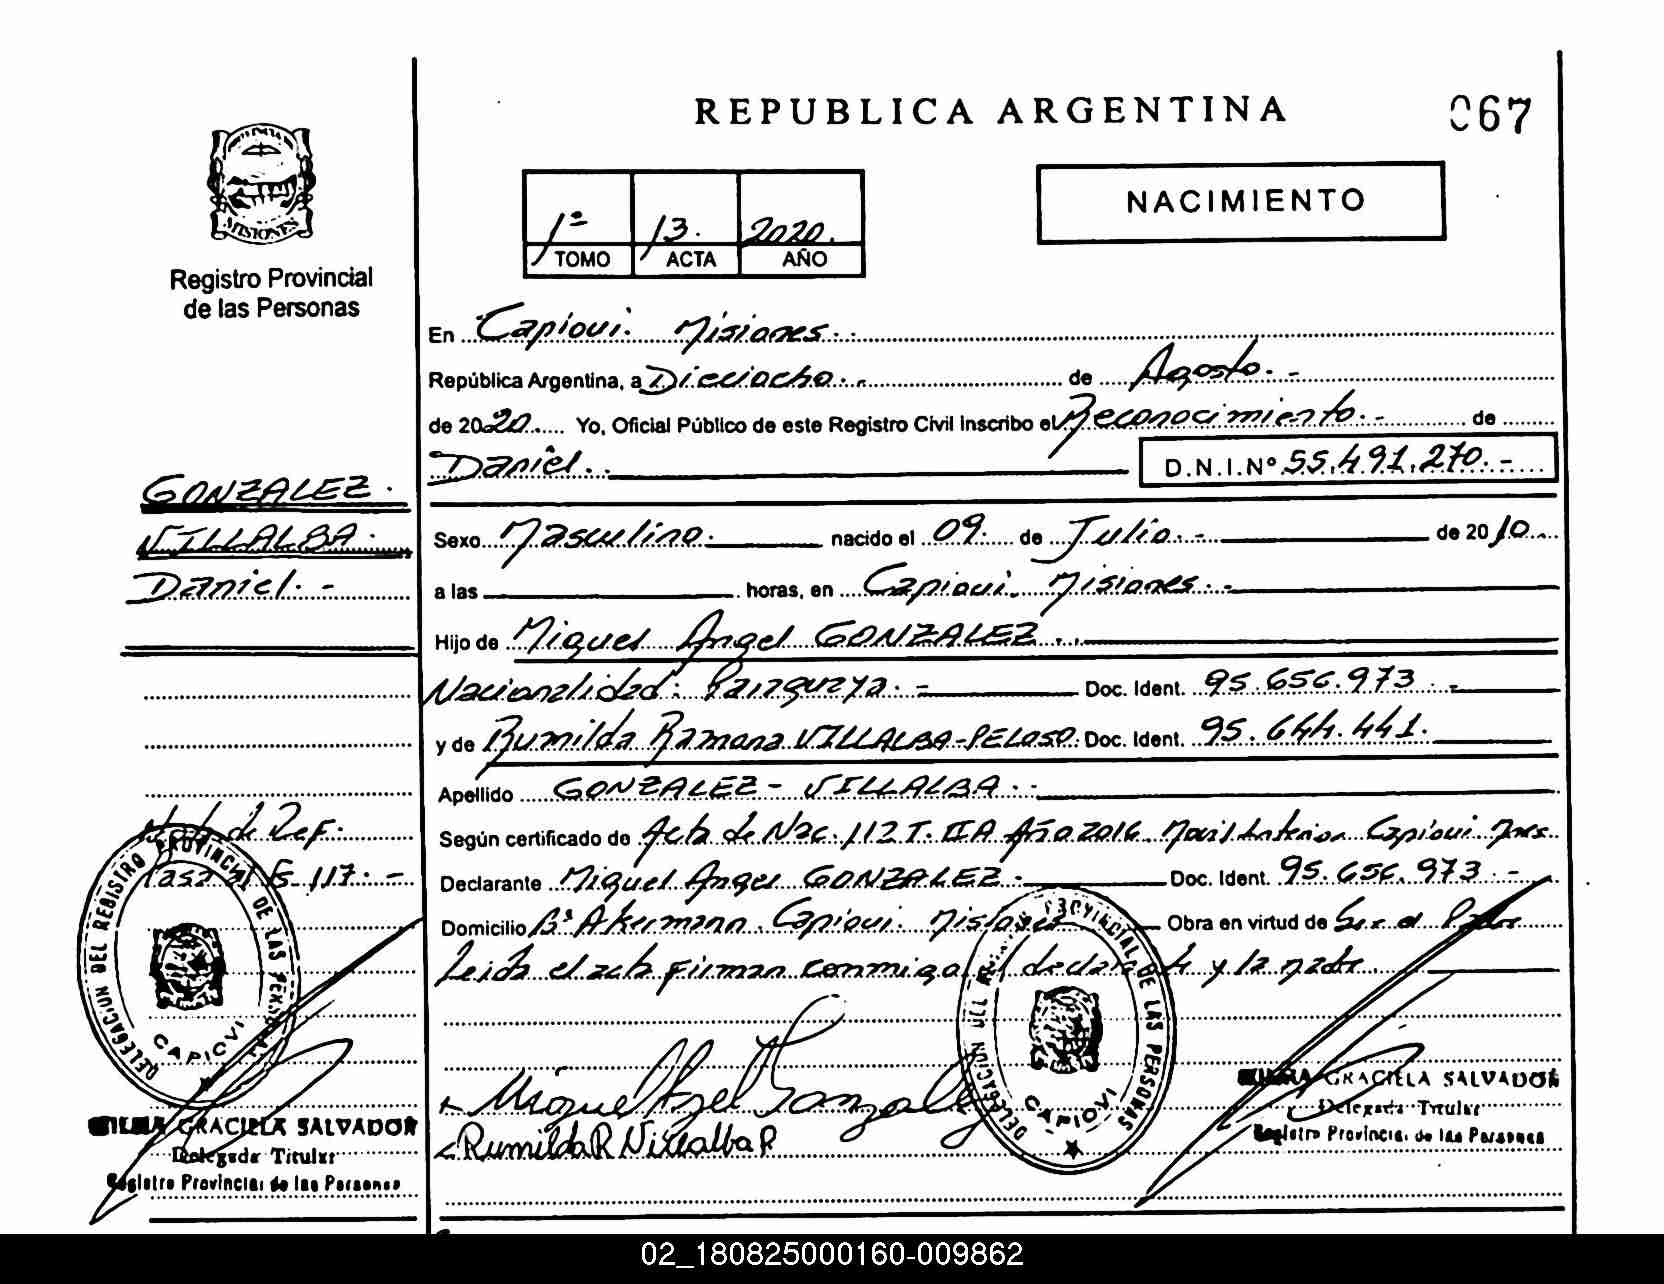 REPUBLICA ARGENTINA
067
MISIONES
Registro Provincial
de las Personas
1º 13. 2020.
TOMO ACTA AÑO
NACIMIENTO
En Capioui. Misiones.
República Argentina, a Dieciocho. de Agosto. -
de 2020. Yo, Oficial Público de este Registro Civil Inscribo el Reconocimiento. - de
Daniel. D.N.I.Nº 55.491.270. -
GONZALEZ
VILLALBA
Daniel. -
Sexo Masculino. nacido el 09. de Julio. - de 2010
a las horas, en Capioui. Misiones. -
Hijo de Miguel Angel GONZALEZ
Nacionalidad: Paraguaya. - Doc. Ident. 95.656.973. -
y de Rumilda Ramona VILLALBA-PELOSO. Doc. Ident. 95.644.441.
Apellido GONZALEZ - VILLALBA. -
Según certificado de Acta de Nac. 112 T. II A Año 2016. Capioui Mnes.
Declarante Miguel Angel GONZALEZ. Doc. Ident. 95.656.973. -
Domicilio Bº Akermann. Capioui. Misiones Obra en virtud de Ser el Padre
Leida el acta firman conmigo el declarante y la madre.
Nota de Ref.
Pasa al Fs 117. -
DELEGACION DEL REGISTRO PROVINCIAL DE LAS PERSONAS
CAPIOVI
DELEGACION DEL REGISTRO PROVINCIAL DE LAS PERSONAS
CAPIOVI
Miguel Angel Gonzalez
Rumilda R Villalba P
GRACIELA SALVADOR
Delegada Titular
Registro Provincial de las Personas
GRACIELA SALVADOR
Delegada Titular
Registro Provincial de las Personas
02_180825000160-009862